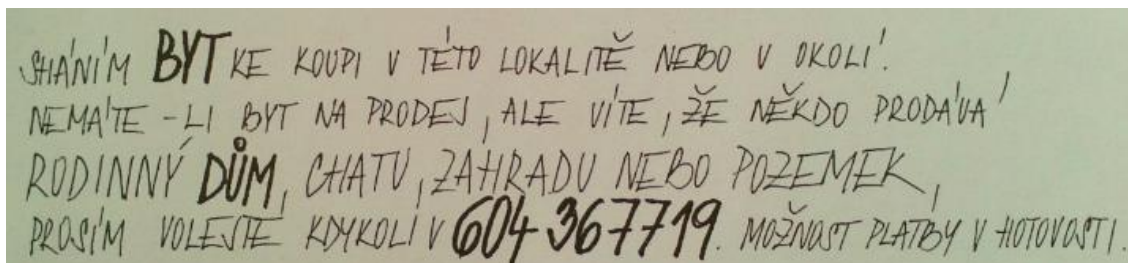 SHÁNÍM BYT KE KOUPI V TÉTO LOKALITĚ NEBO V OKOLÍ.
NEMÁTE - LI BYT NA PRODEJ, ALE VÍTE, ŽE NĚKDO PRODÁVÁ
RODINNÝ DŮM, CHATU, ZAHRADU NEBO POZEMEK,
PROSÍM VOLEJTE KDYKOLI V 604 367719. MOŽNOST PLATBY V HOTOVOSTI.